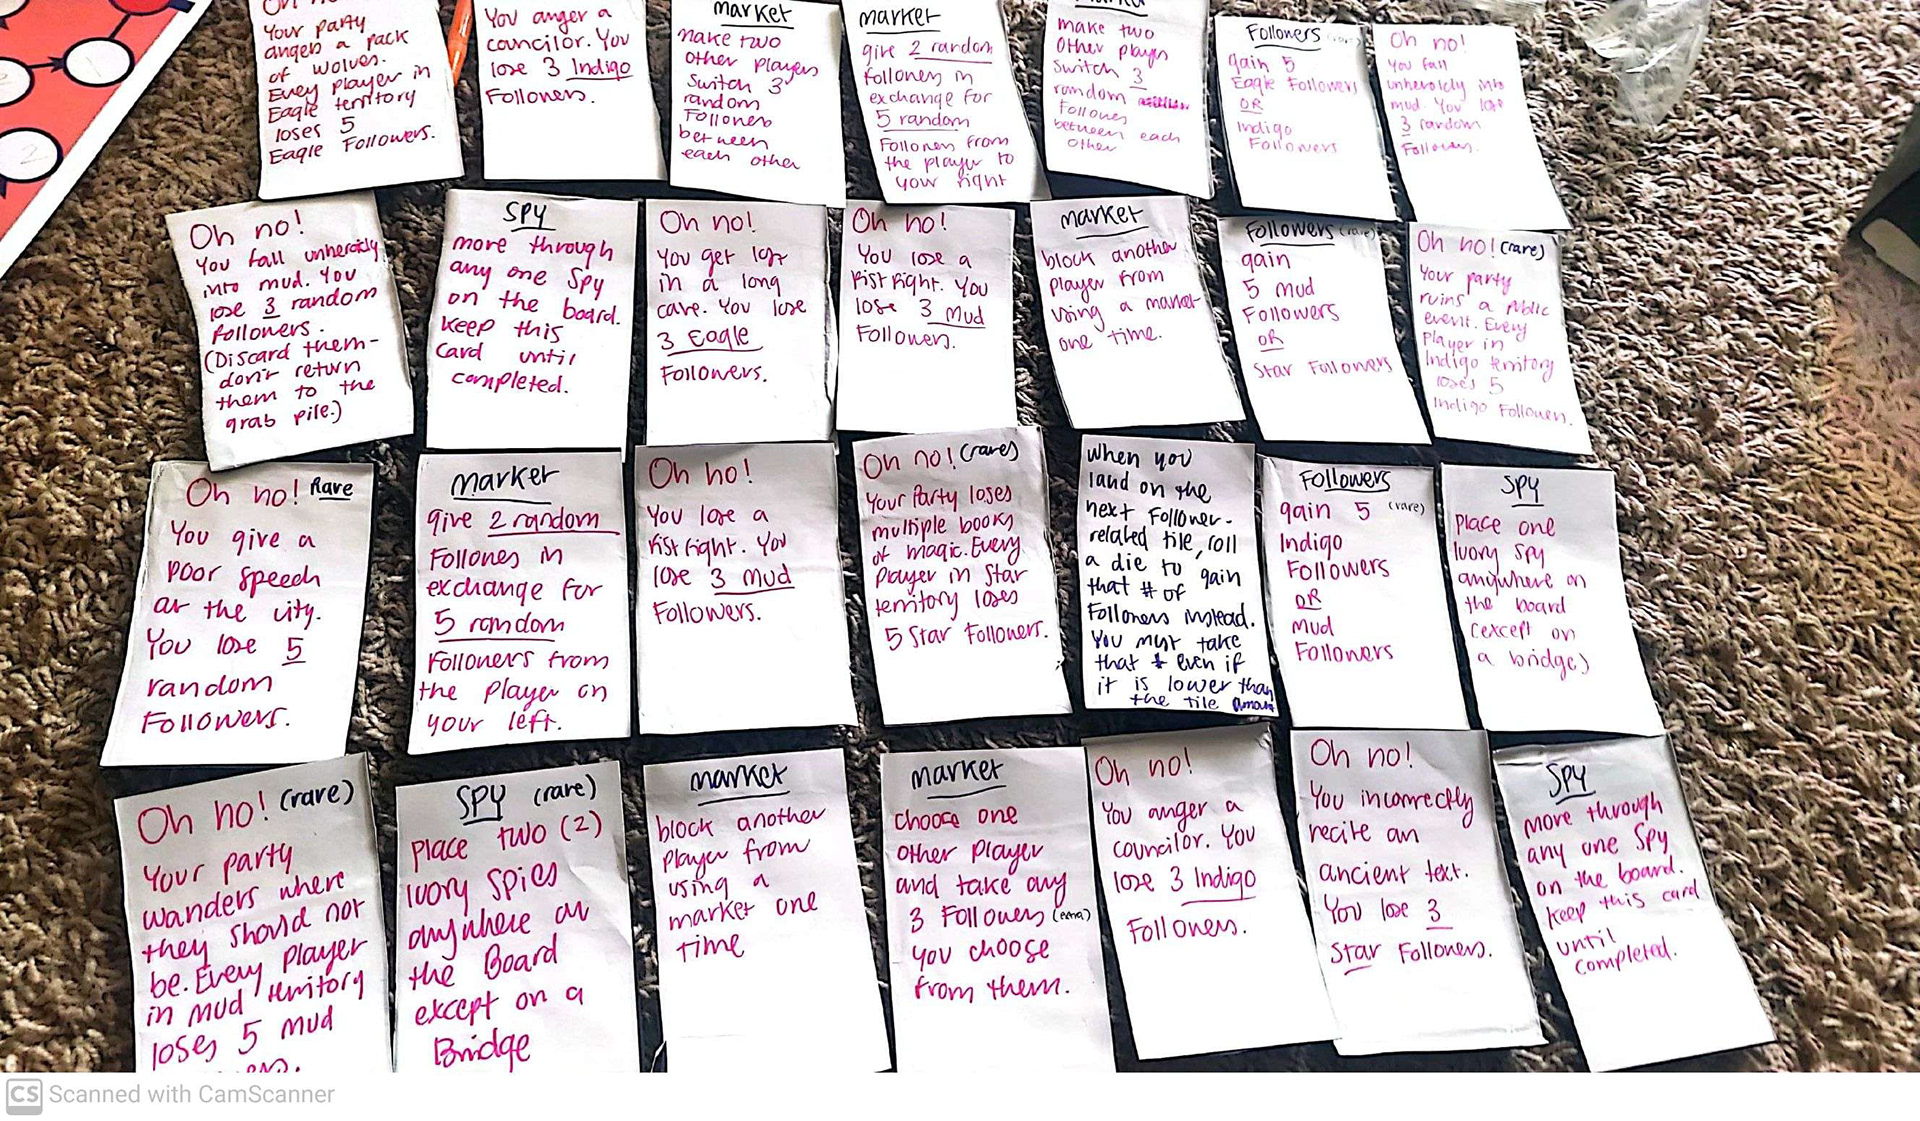 Oh no!
Your party
angers a pack
of wolves.
Every player in
Eagle territory
loses 5
Eagle Followers.
You anger a
councilor. You
lose 3 Indigo
Followers.
market
make two
other players
switch 3
random
Followers
between
each other
market
give 2 random
followers in
exchange for
5 random
Followers from
the player to
your right
market
make two
other players
switch 3
random
Followers
between each
other
Followers (rare)
gain 5
Eagle Followers
OR
Indigo
Followers
Oh no!
You fall
unheroicly into
mud. You lose
3 random
Followers.
Oh no!
You fall unheroicly
into mud. You
lose 3 random
followers.
(Discard them-
don't return
them to the
grab pile.)
SPY
move through
any one Spy
on the board.
keep this
card until
completed.
Oh no!
You get lost
in a long
cave. You lose
3 Eagle
Followers.
Oh no!
You lose a
fist fight. You
lose 3 Mud
Followers.
market
block another
player from
using a market
one time.
Followers (rare)
gain
5 mud
Followers
OR
Star Followers
Oh no! (rare)
Your party
ruins a public
event. Every
Player in
Indigo territory
loses 5
Indigo Followers.
Oh no! Rare
You give a
poor speech
at the city.
You lose 5
random
Followers.
market
give 2 random
Followers in
exchange for
5 random
Followers from
the player on
your left.
Oh no!
You lose a
fist fight. You
lose 3 mud
Followers.
Oh no! (rare)
Your Party loses
multiple books
of magic. Every
Player in Star
territory loses
5 Star Followers.
When you
land on the
next Follower-
related tile, roll
a die to
that # of gain
Followers instead.
You must take
that # even if
it is lower than
the tile amount
Followers
gain 5 (rare)
Indigo
Followers
OR
mud
Followers
SPY
Place one
Ivory Spy
anywhere on
the board
(except on
a bridge)
Oh no! (rare)
Your party
wanders where
they should not
be. Every Player
in mud territory
loses 5 mud
SPY (rare)
Place two (2)
Ivory Spies
anywhere on
the Board
except on a
Bridge
market
block another
player from
using a
market one
time
market
choose one
other player
and take any
3 Followers (extra)
you choose
from them.
Oh no!
You anger a
councilor. You
lose 3 Indigo
Followers.
Oh no!
You incorrectly
recite an
ancient text.
You lose 3
Star Followers.
SPY
move through
any one Spy
on the board.
keep this card
until
completed.
2
CS Scanned with CamScanner